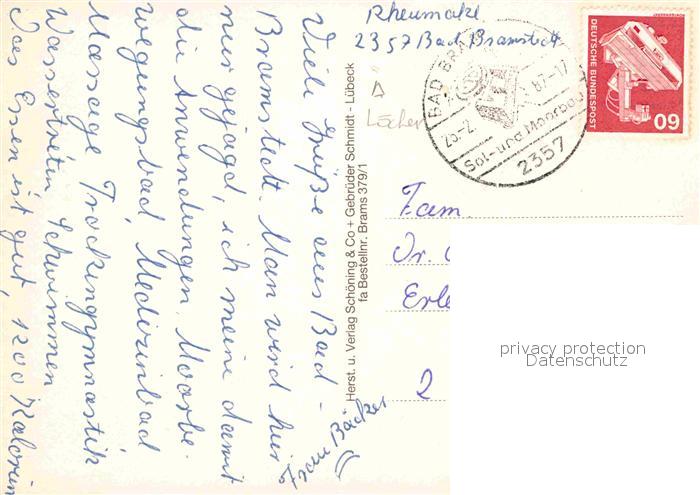 Rheumakl.
2357 Bad Bramstedt
Viele Grüße aus Bad-
Bramstedt. Man wird hier
nur gejagd, ich meine damit
die Anwendungen. Moorbe-
wegungsbad, Medizinbad
Massage Trockengymnastik
Wassertreten Schwimmen
Das Essen ist gut, 1200 Kalorien
Frau Bäcker
Herst. u. Verlag Schöning & Co + Gebrüder Schmidt - Lübeck
fa Bestellnr. Brams 379/1
Löcher
BAD BRA
25.-2. 87-17
Sol- und Moorbad
2357
DEUTSCHE BUNDESPOST
60
RÖNTGENGERÄT
Fam
Dr.
Erle
2
privacy protection
Datenschutz